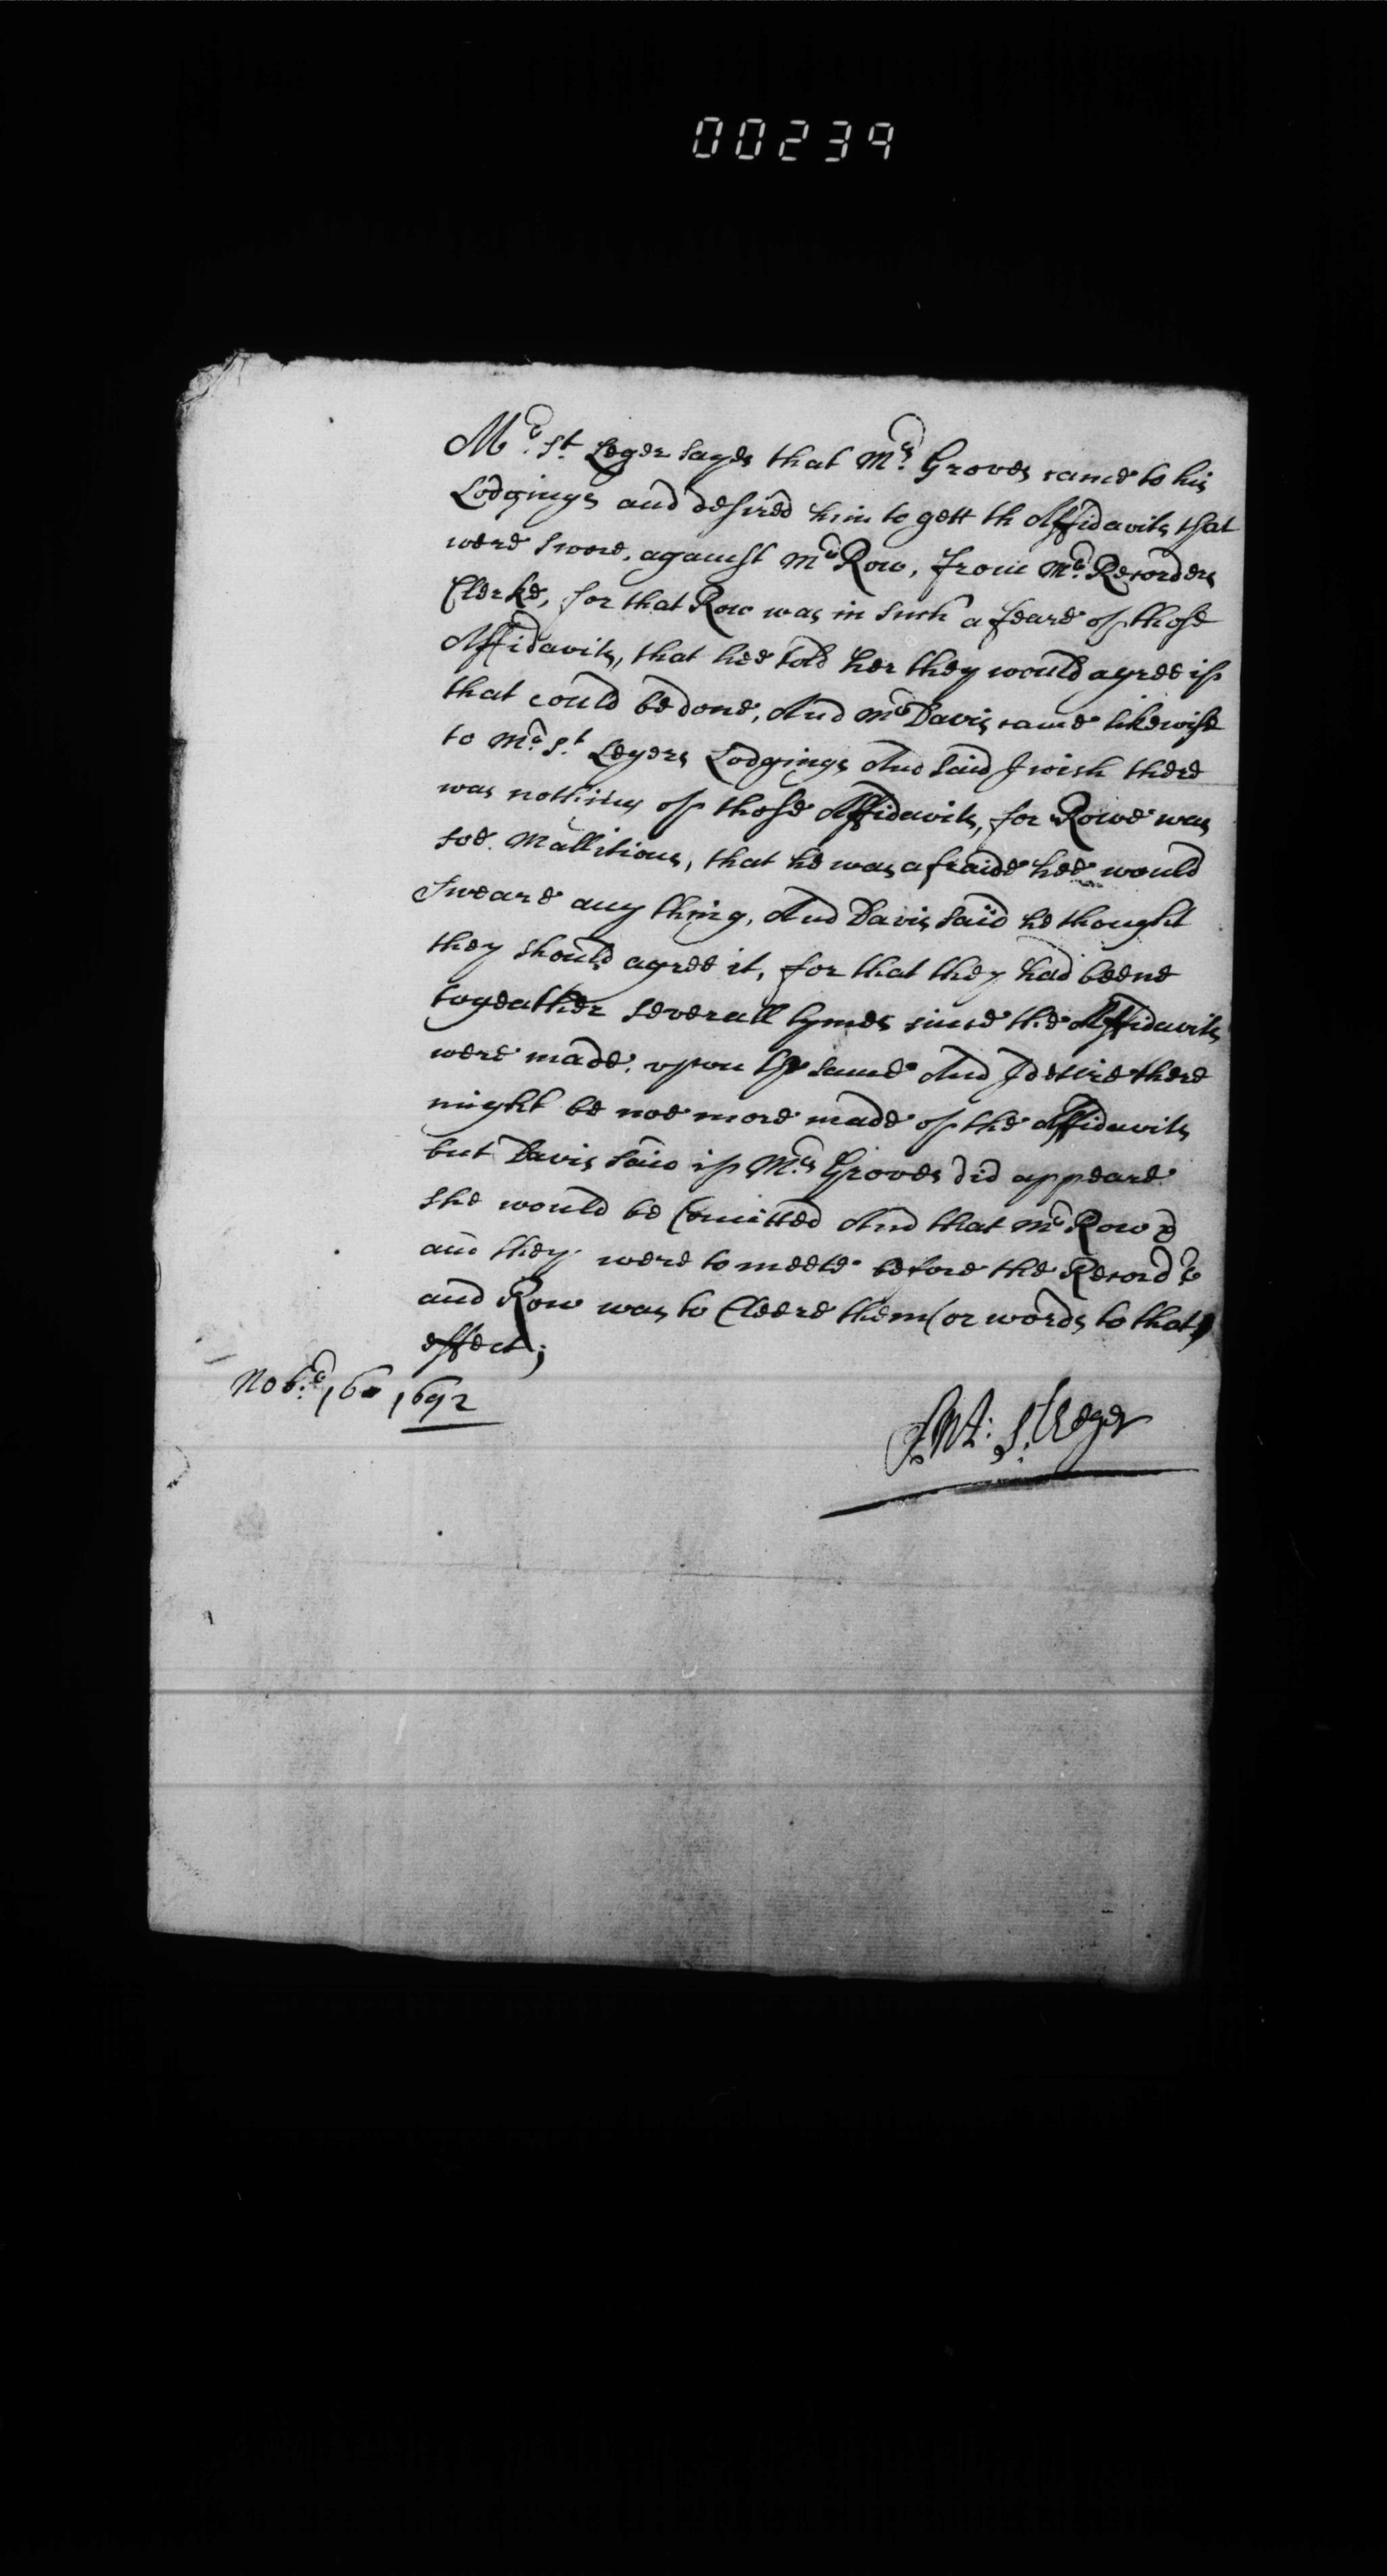 00239
Mr. St. Leger sayes that Mrs. Groves came to his
Lodgings and desired him to gett th Affidavits that
were swore, against Mr Row, from Mr. Recorders
Clerke, for that Row was in such a feare of those
Affidavits, that hee told her they would agree if
that could be done, And Mr Davis came likewise
to Mr. St. Legers Lodgings And said I wish there
was nothing of those Affidavits, for Rowe was
soe Mallitious, that he was afraide hee would
sweare any thing, And Davis said he thought
they should agree it, for that they had beene
togeather severall tymes since the Affidavits
were made, upon the same And I desire there
might be noe more made of the Affidavits
but Davis said if Mrs Groves did appeare
she would be Comitted And that Mr Row
and they were to meete before the Recordr
and Row was to Cleere them (or words to that)
effect;
Nobr. 16 1692
Ant: St Leger